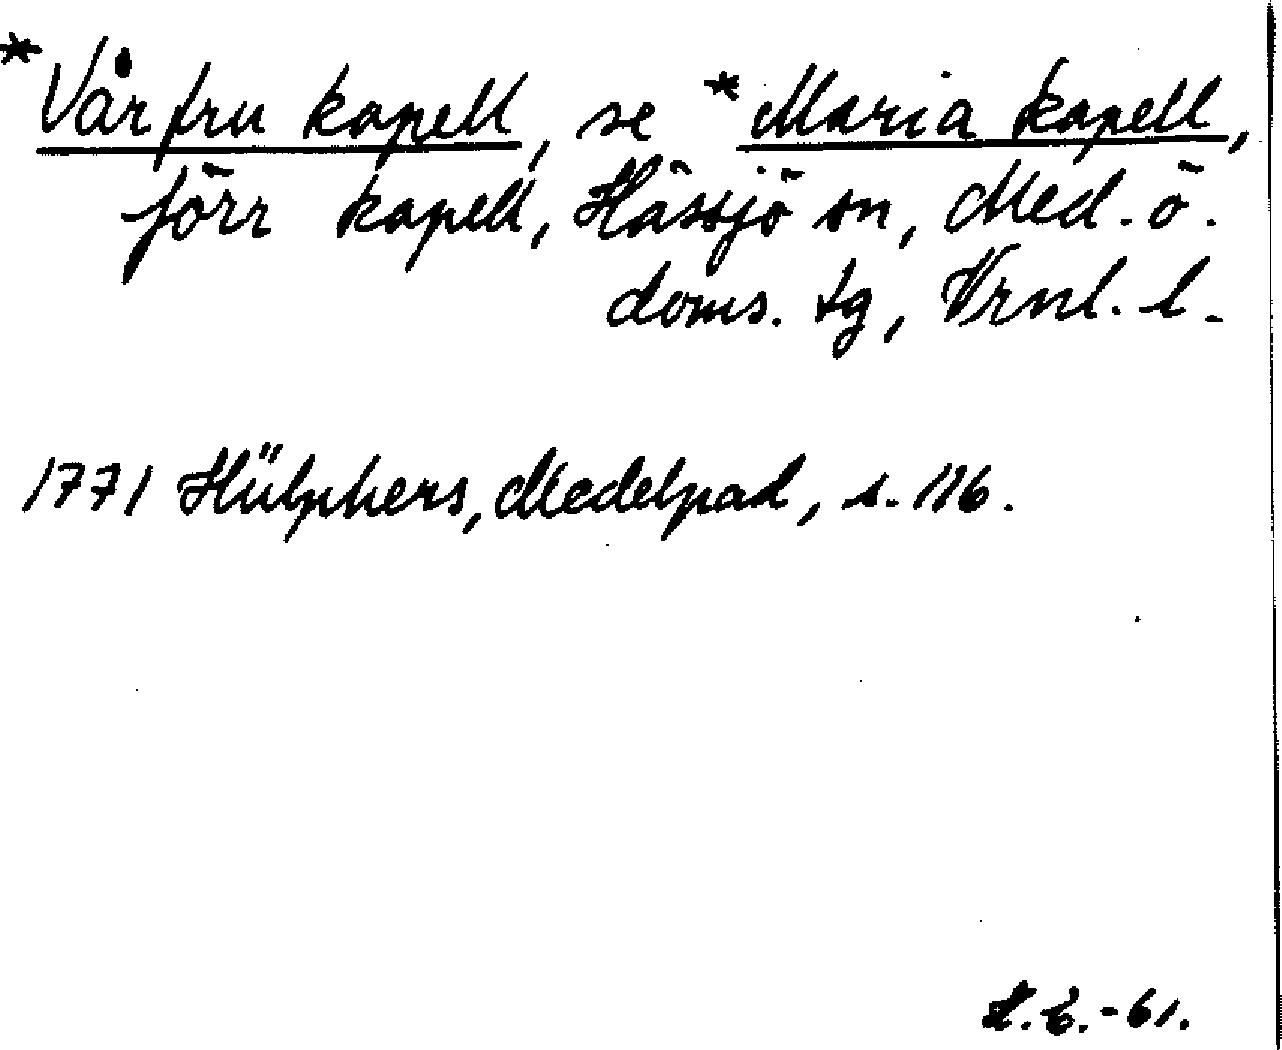 *Vår fru kapell, se *Maria kapell,
förr kapell, Hässjö sn, Med. ö.
doms. tg, Vrnl. l.
1771 Hülphers, Medelpad, s. 116.
-61.